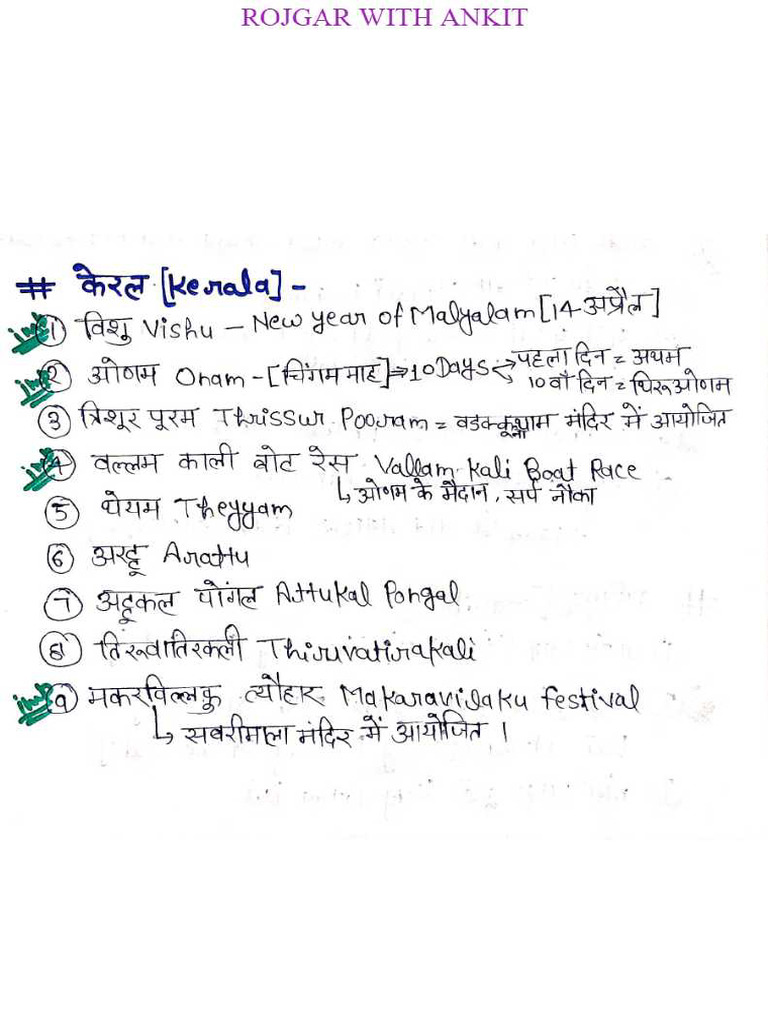 ROJGAR WITH ANKIT
# केरल [Kerala] -
imp ① विशु Vishu - New year of Malyalam [14 अप्रैल]
imp ② ओणम Onam - [चिंगम माह] → 10 Days पहला दिन = अथम
10 वाँ दिन = थिरूओणम
③ त्रिशूर पूरम Thrissur Pooram = वडक्कूनाथ मंदिर में आयोजित
imp ④ वल्लम काली बोट रेस Vallam Kali Boat Race
↳ ओणम के मैदान, सर्प नौका
⑤ थेयम Theyyam
⑥ अरट्टू Arattu
⑦ अट्टूकल पोंगल Attukal Pongal
⑧ तिरूवातिरकली Thiruvatirakali
imp ⑨ मकरविल्लकु त्यौहार Makaravilaku festival
↳ सबरीमाला मंदिर में आयोजित ।